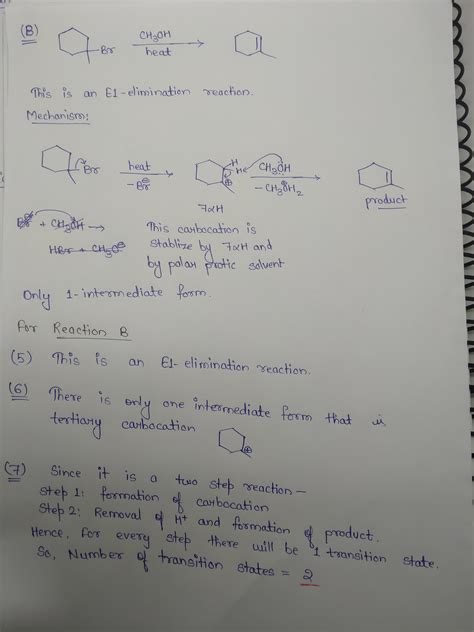 (B)
Br
CH3OH
heat
This is an E1-elimination reaction.
Mechanism:
Br
heat
-Br⊖
H
H
⊕
CH3ÖH
-CH3ÖH2
product
7αH
Br⊖ + CH3ÖH →
HBr + CH3O⊖
This carbocation is
stablize by 7αH and
by polar protic solvent
Only 1-intermediate form.
For Reaction B
(5) This is an E1-elimination reaction.
(6) There is only one intermediate form that is
tertiary carbocation
⊕
(7) Since it is a two step reaction -
Step 1: formation of carbocation
Step 2: Removal of H+ and formation of product.
Hence, for every step there will be 1 transition state.
So, Number of transition states = 2